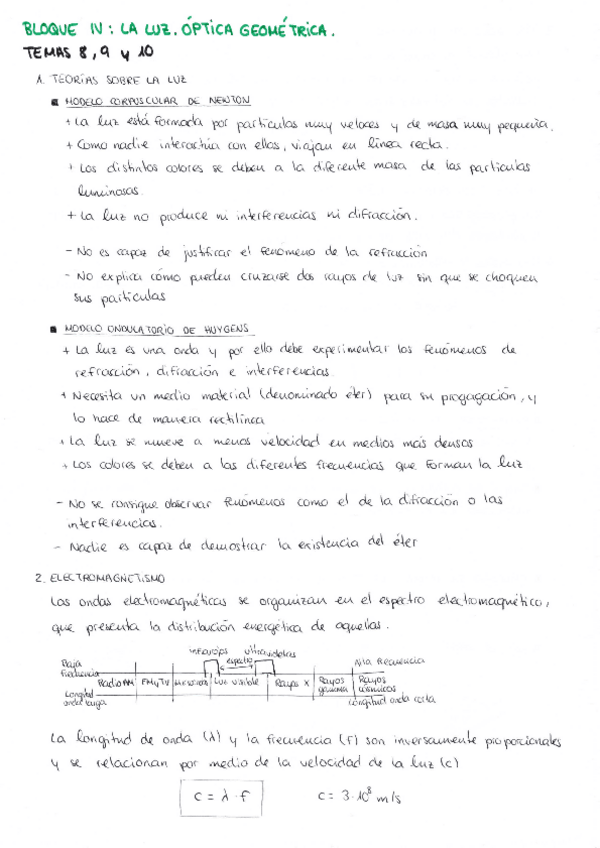 BLOQUE IV: LA LUZ. ÓPTICA GEOMÉTRICA.
TEMAS 8, 9 y 10
1. TEORÍAS SOBRE LA LUZ
■ MODELO CORPUSCULAR DE NEWTON
+ La luz está formada por partículas muy veloces y de masa muy pequeña.
+ Como nadie interactúa con ellas, viajan en línea recta.
+ Los distintos colores se deben a la diferente masa de las partículas
luminosas.
+ La luz no produce ni interferencias ni difracción.
- No es capaz de justificar el fenómeno de la refracción
- No explica cómo pueden cruzarse dos rayos de luz sin que se choquen
sus partículas
■ MODELO ONDULATORIO DE HUYGENS
+ La luz es una onda y por ello debe experimentar los fenómenos de
refracción, difracción e interferencias.
+ Necesita un medio material (denominado éter) para su propagación, y
lo hace de manera rectilínea
+ La luz se mueve a menos velocidad en medios más densos
+ Los colores se deben a las diferentes frecuencias que forman la luz
- No se consigue observar fenómenos como el de la difracción o las
interferencias.
- Nadie es capaz de demostrar la existencia del éter
2. ELECTROMAGNETISMO
Las ondas electromagnéticas se organizan en el espectro electromagnético,
que presenta la distribución energética de aquellas.
infrarrojos ultravioletas
Baja frecuencia espectro Alta frecuencia
Radio AM FM y TV microondas Luz visible Rayos X Rayos gamma Rayos cósmicos
Longitud onda larga longitud onda corta
La longitud de onda (λ) y la frecuencia (f) son inversamente proporcionales
y se relacionan por medio de la velocidad de la luz (c)
c = λ · f c = 3·10⁸ m/s